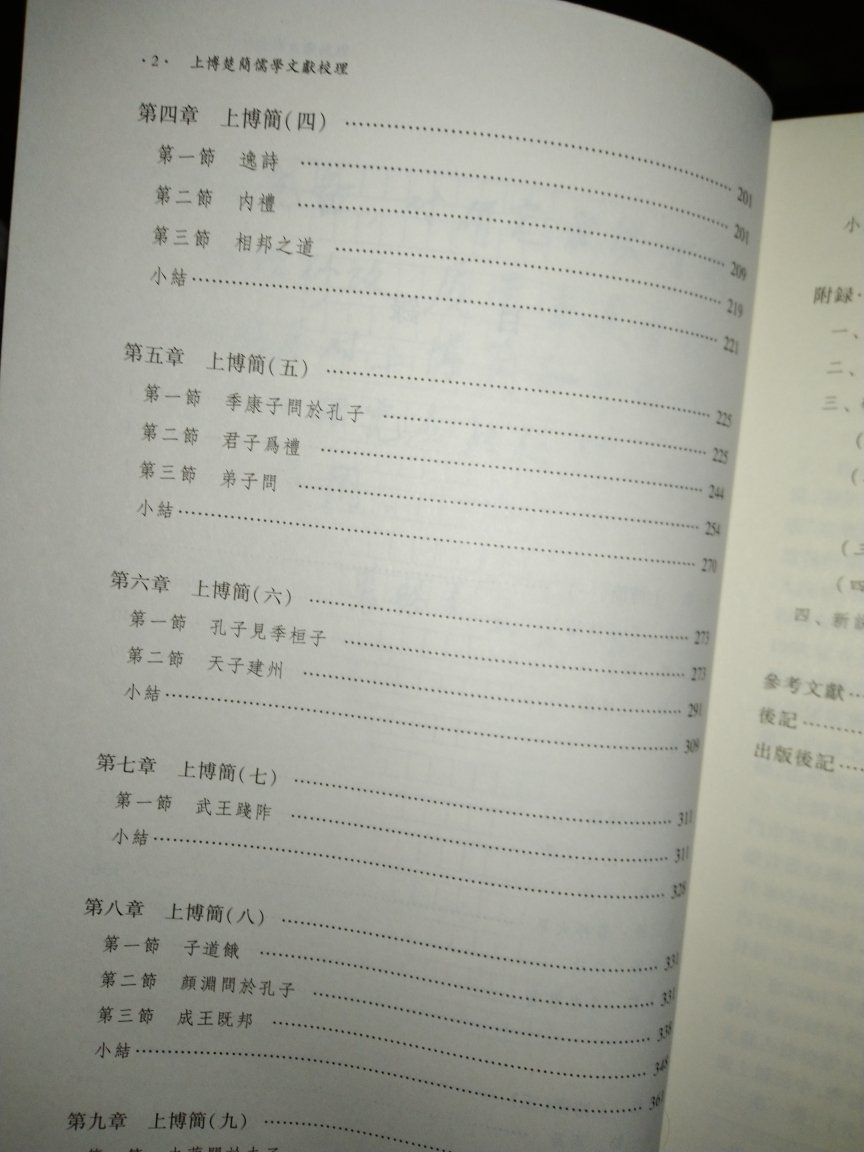 ·2· 上博楚簡儒學文獻校理
第四章 上博簡(四) …… 201
第一節 逸詩 …… 201
第二節 内禮 …… 209
第三節 相邦之道 …… 219
小結 …… 221
第五章 上博簡(五) …… 225
第一節 季康子問於孔子 …… 225
第二節 君子爲禮 …… 244
第三節 弟子問 …… 254
小結 …… 270
第六章 上博簡(六) …… 273
第一節 孔子見季桓子 …… 273
第二節 天子建州 …… 291
小結 …… 309
第七章 上博簡(七) …… 311
第一節 武王踐阼 …… 311
小結 …… 328
第八章 上博簡(八) …… 331
第一節 子道餓 …… 331
第二節 顔淵問於孔子 …… 338
第三節 成王既邦 …… 348
小結 …… 361
第九章 上博簡(九) ……
小
附録
一、
二、
三、
(三
(四
四、新
參考文獻 ……
後記 ……
出版後記 ……